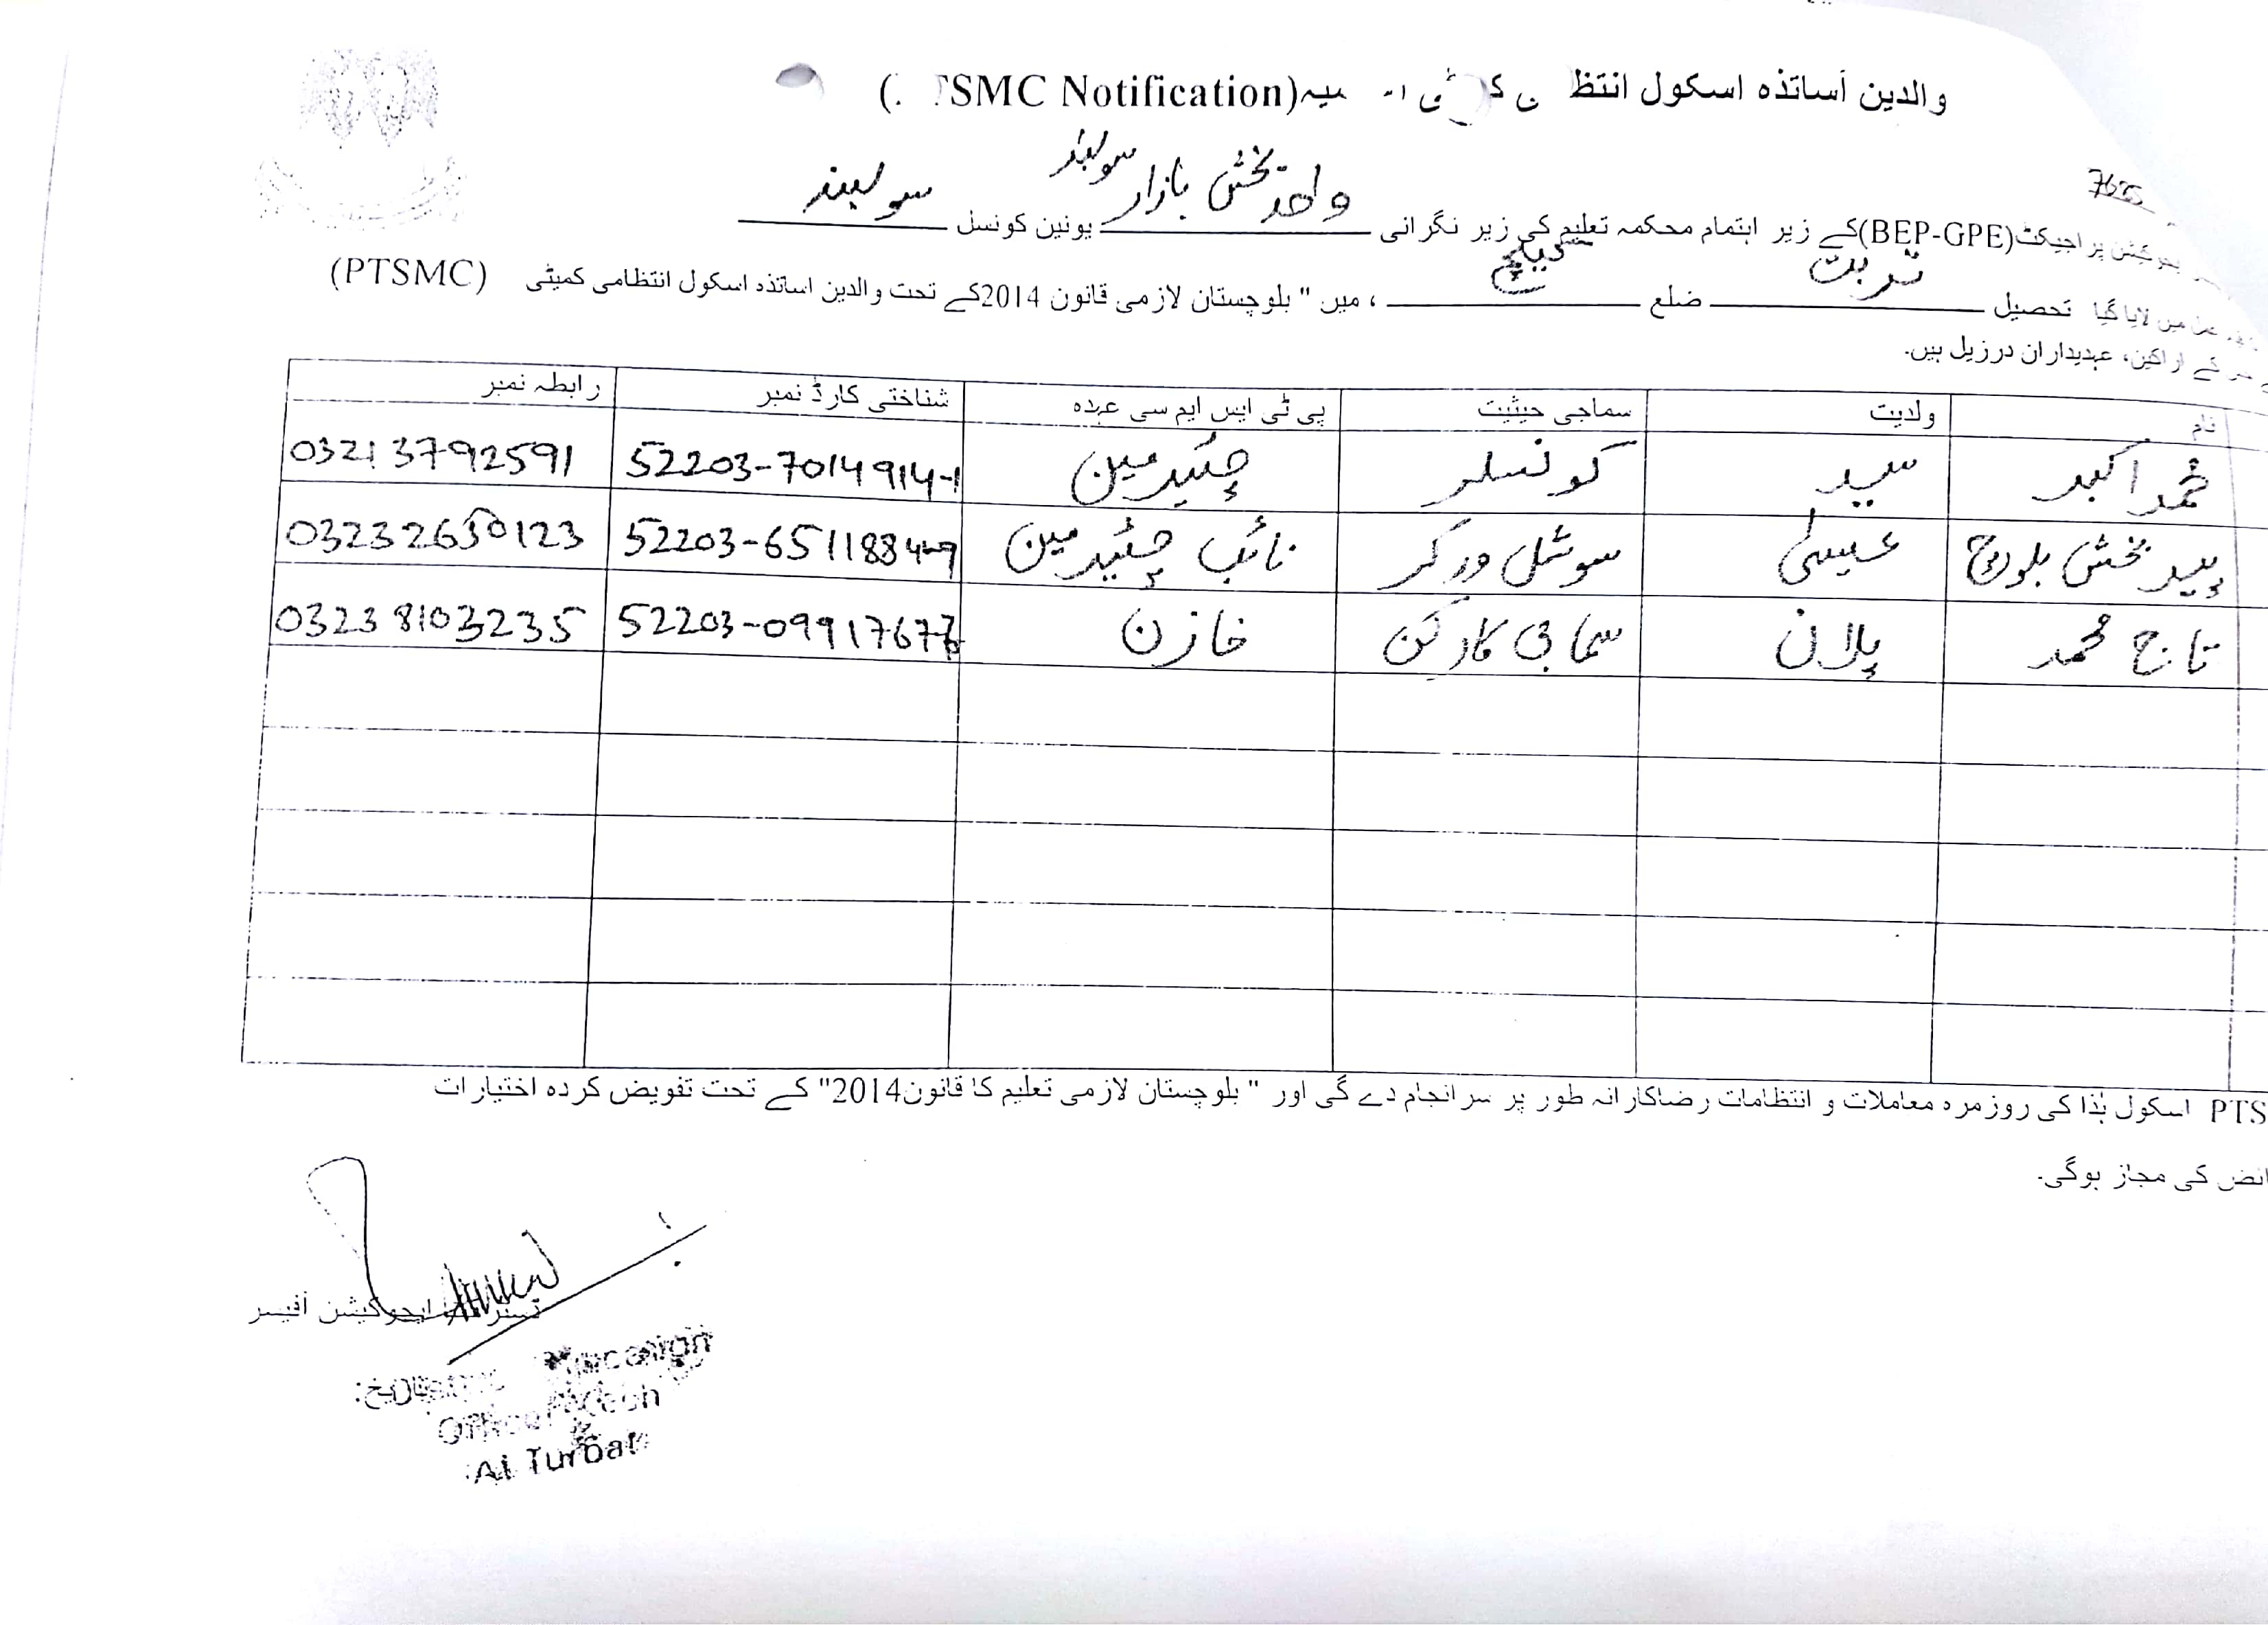 والدین أساتذہ اسکول انتظ ی ک ٹی ا میہ(TSMC Notification)
7625
ایجوکیشن پراجیکٹ(BEP-GPE)کے زیر اہتمام محکمہ تعلیم کی زیر نگرانی واحد بخش بازار سولبند یونین کونسل سولبند
عمل میں لایا گیا تحصیل تربت ضلع کیچ ، میں " بلوچستان لازمی قانون 2014کے تحت والدین اساتذہ اسکول انتظامی کمیٹی (PTSMC)
کے اراکین، عہدیداران درزیل ہیں۔
نام ولدیت سماجی حیثیت پی ٹی ایس ایم سی عہدہ شناختی کارڈ نمبر رابطہ نمبر
محمد اکبر سید کونسلر چئیرمین 52203-7014914-1 03213792591
پیر بخش بلوچ عیسیٰ سوشل ورکر نائب چئیرمین 52203-6511884-9 03232650123
تاج محمد پلان سماجی کارکن خازن 52203-0991767 03238103235
PTS اسکول ہٰذا کی روزمرہ معاملات و انتظامات رضاکارانہ طور پر سرانجام دے گی اور " بلوچستان لازمی تعلیم کا قانون2014" کے تحت تفویض کردہ اختیارات
ائض کی مجاز ہوگی۔
ایجوکیشن آفیسر
تاریخ:
Officer Kech
At Turbat